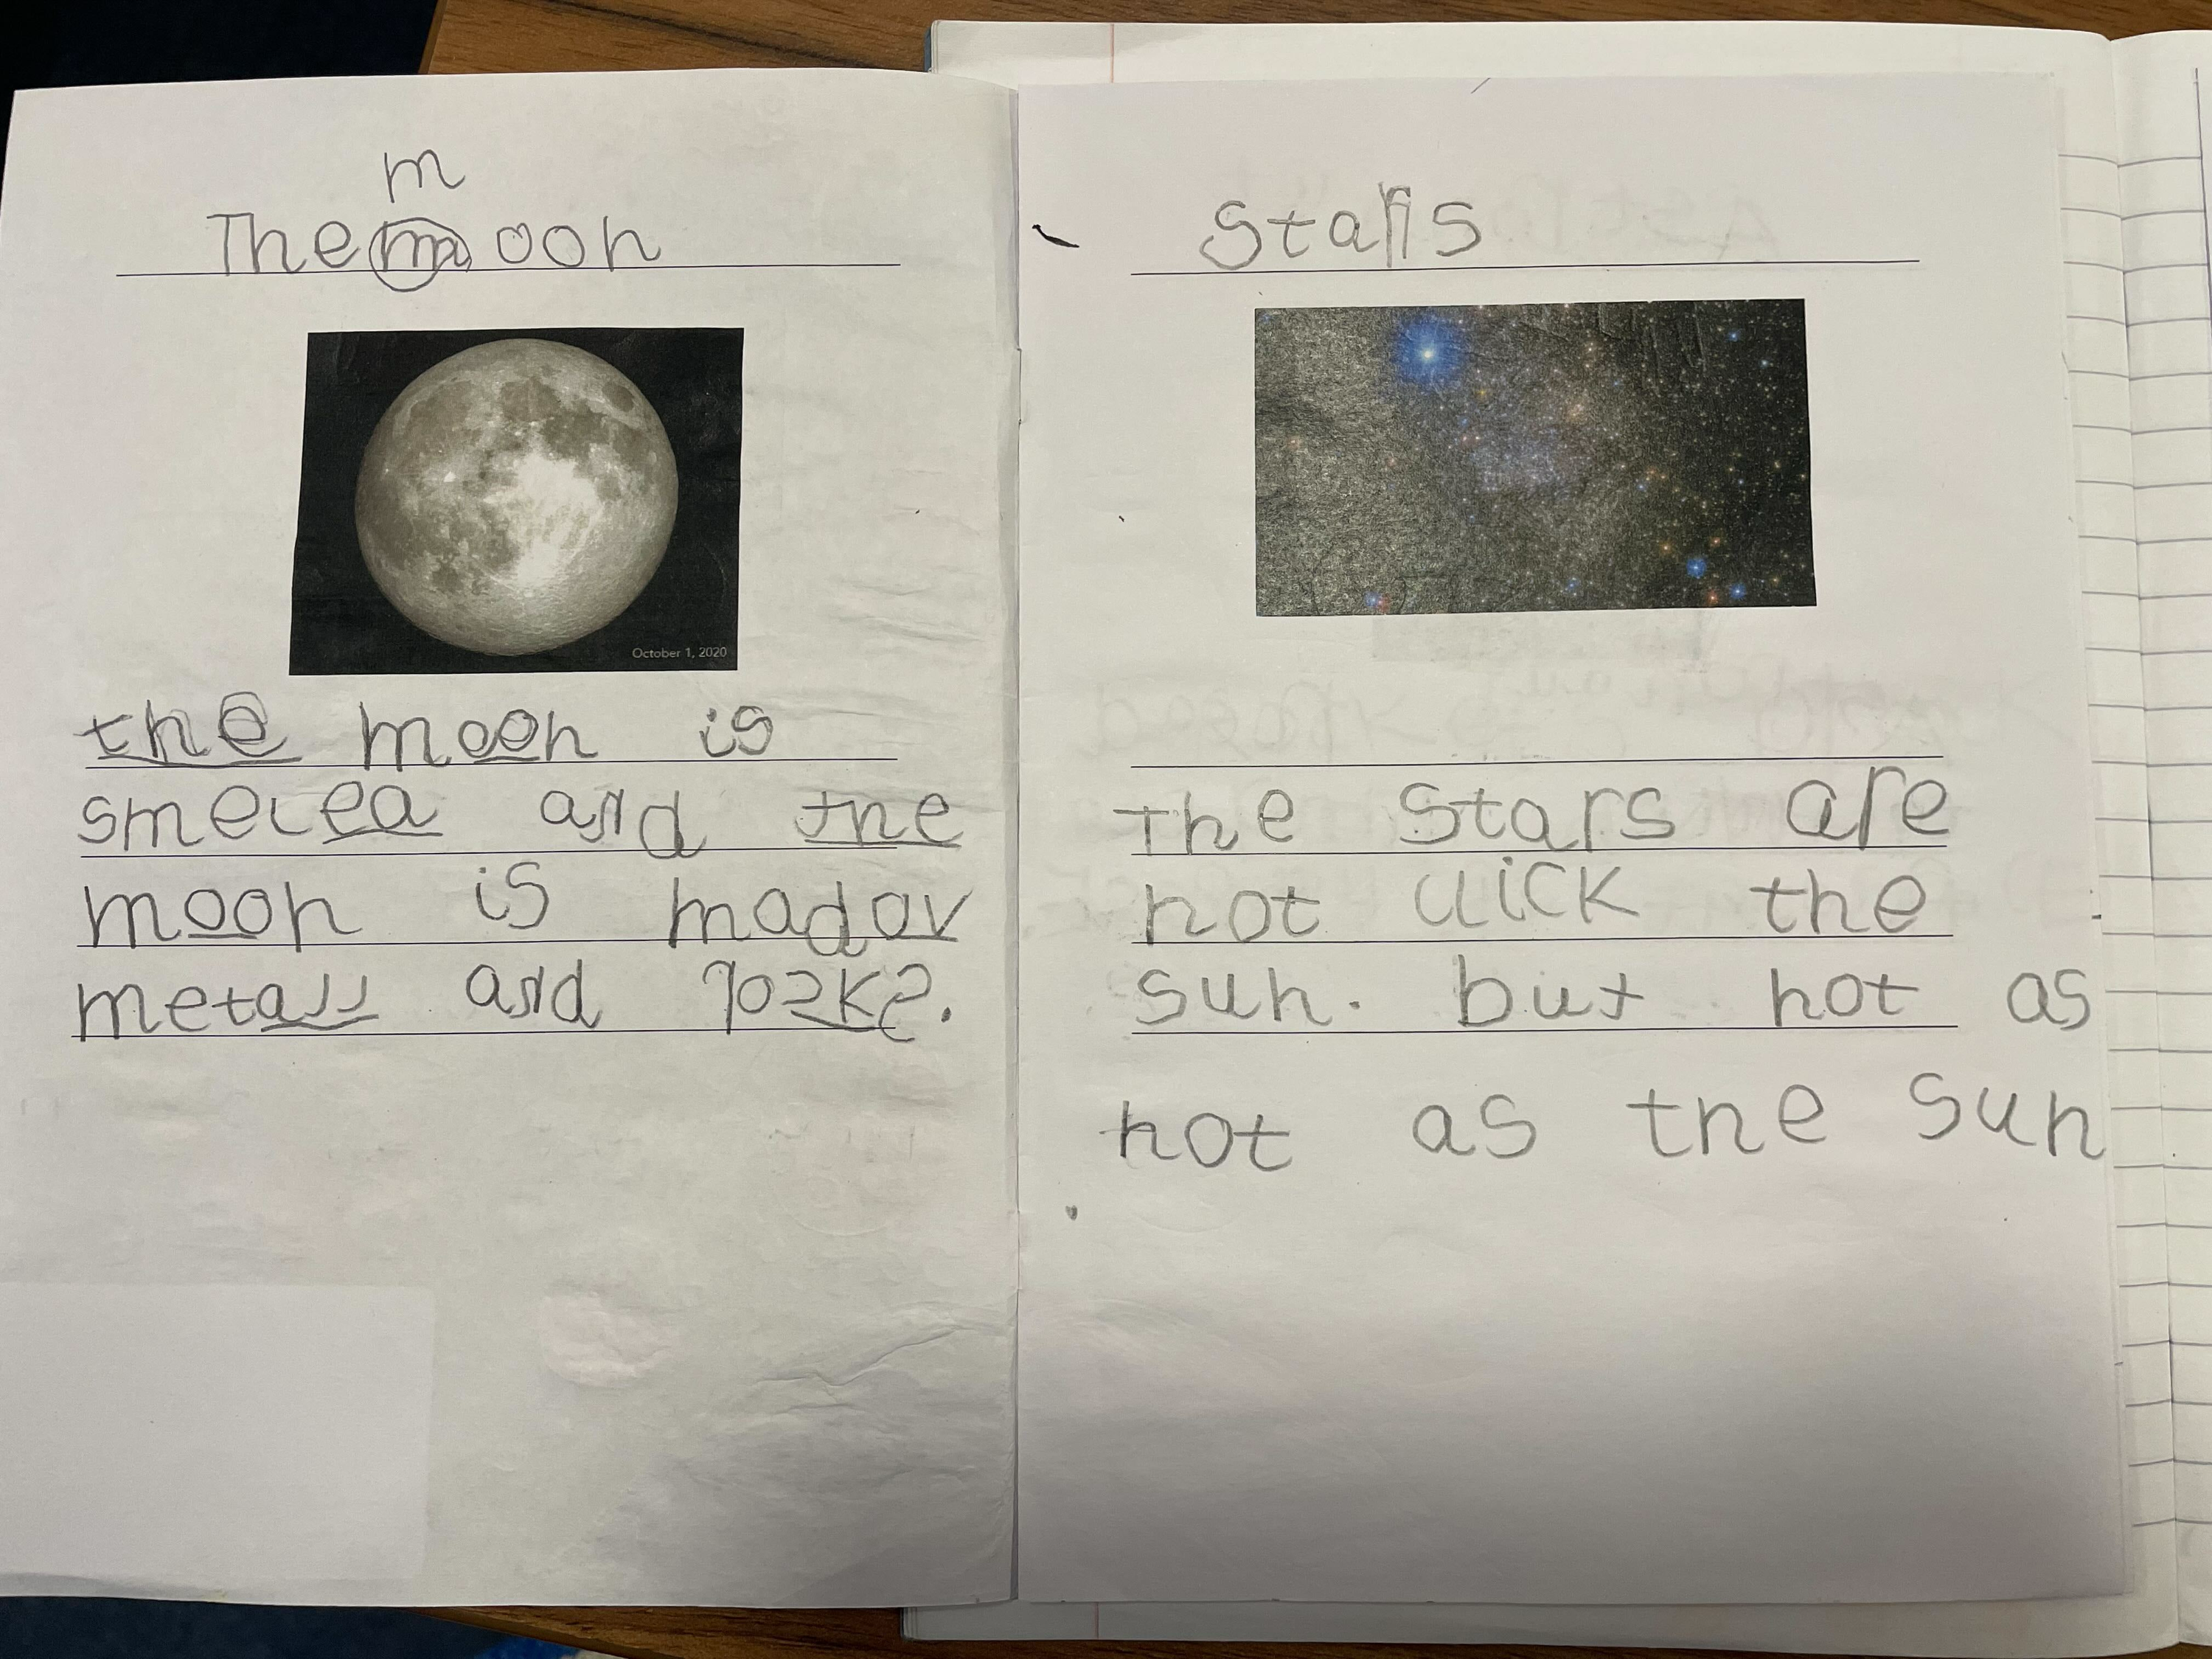 m
The m oon
October 1, 2020
the moon is
smelea and the
moon is madov
metall and rocks.
Stars
the stars are
hot lick the
sun. but not as
hot as the sun
.